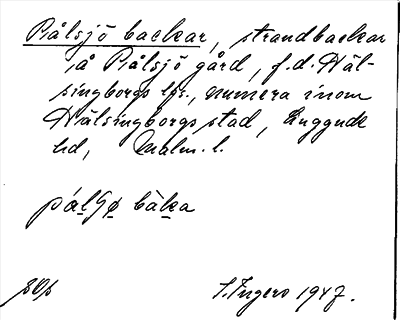 Pålsjö backar, strandbackar
å Pålsjö gård, f.d. Häl-
singborgs lfs., numera inom
Hälsingborgs stad, Luggude
hd, Malm. l.
bàka
S. Ingers 1947.